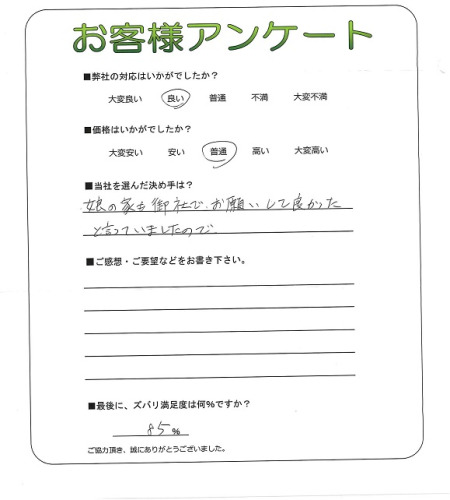 お客様アンケート
■弊社の対応はいかがでしたか？
大変良い 良い 普通 不満 大変不満
■価格はいかがでしたか？
大変安い 安い 普通 高い 大変高い
■当社を選んだ決め手は？
娘の家も御社で、お願いして良かった
と言っていましたので、
■ご感想・ご要望などをお書き下さい。
■最後に、ズバリ満足度は何％ですか？
85％
ご協力頂き、誠にありがとうございました。